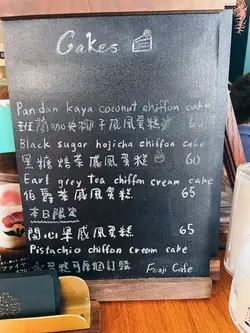 Cakes
Pandan kaya coconut chiffon cake
班蘭咖央椰子戚風蛋糕
Black sugar hojicha chiffon cake
黑糖焙茶戚風蛋糕 60
Earl grey tea chiffon cream cake
伯爵茶戚風蛋糕 65
本日限定
開心果戚風蛋糕 65
Pistachio chiffon cream cake
蛋糕可原個訂購 Fuuji Cafe